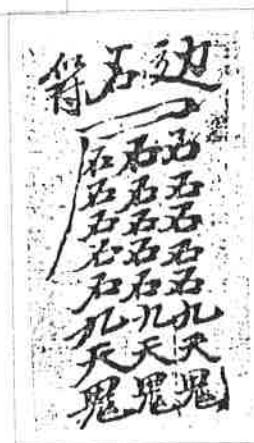 边石符
石石石石石九天鬼
石石石石石九天鬼
石石石石石九天鬼